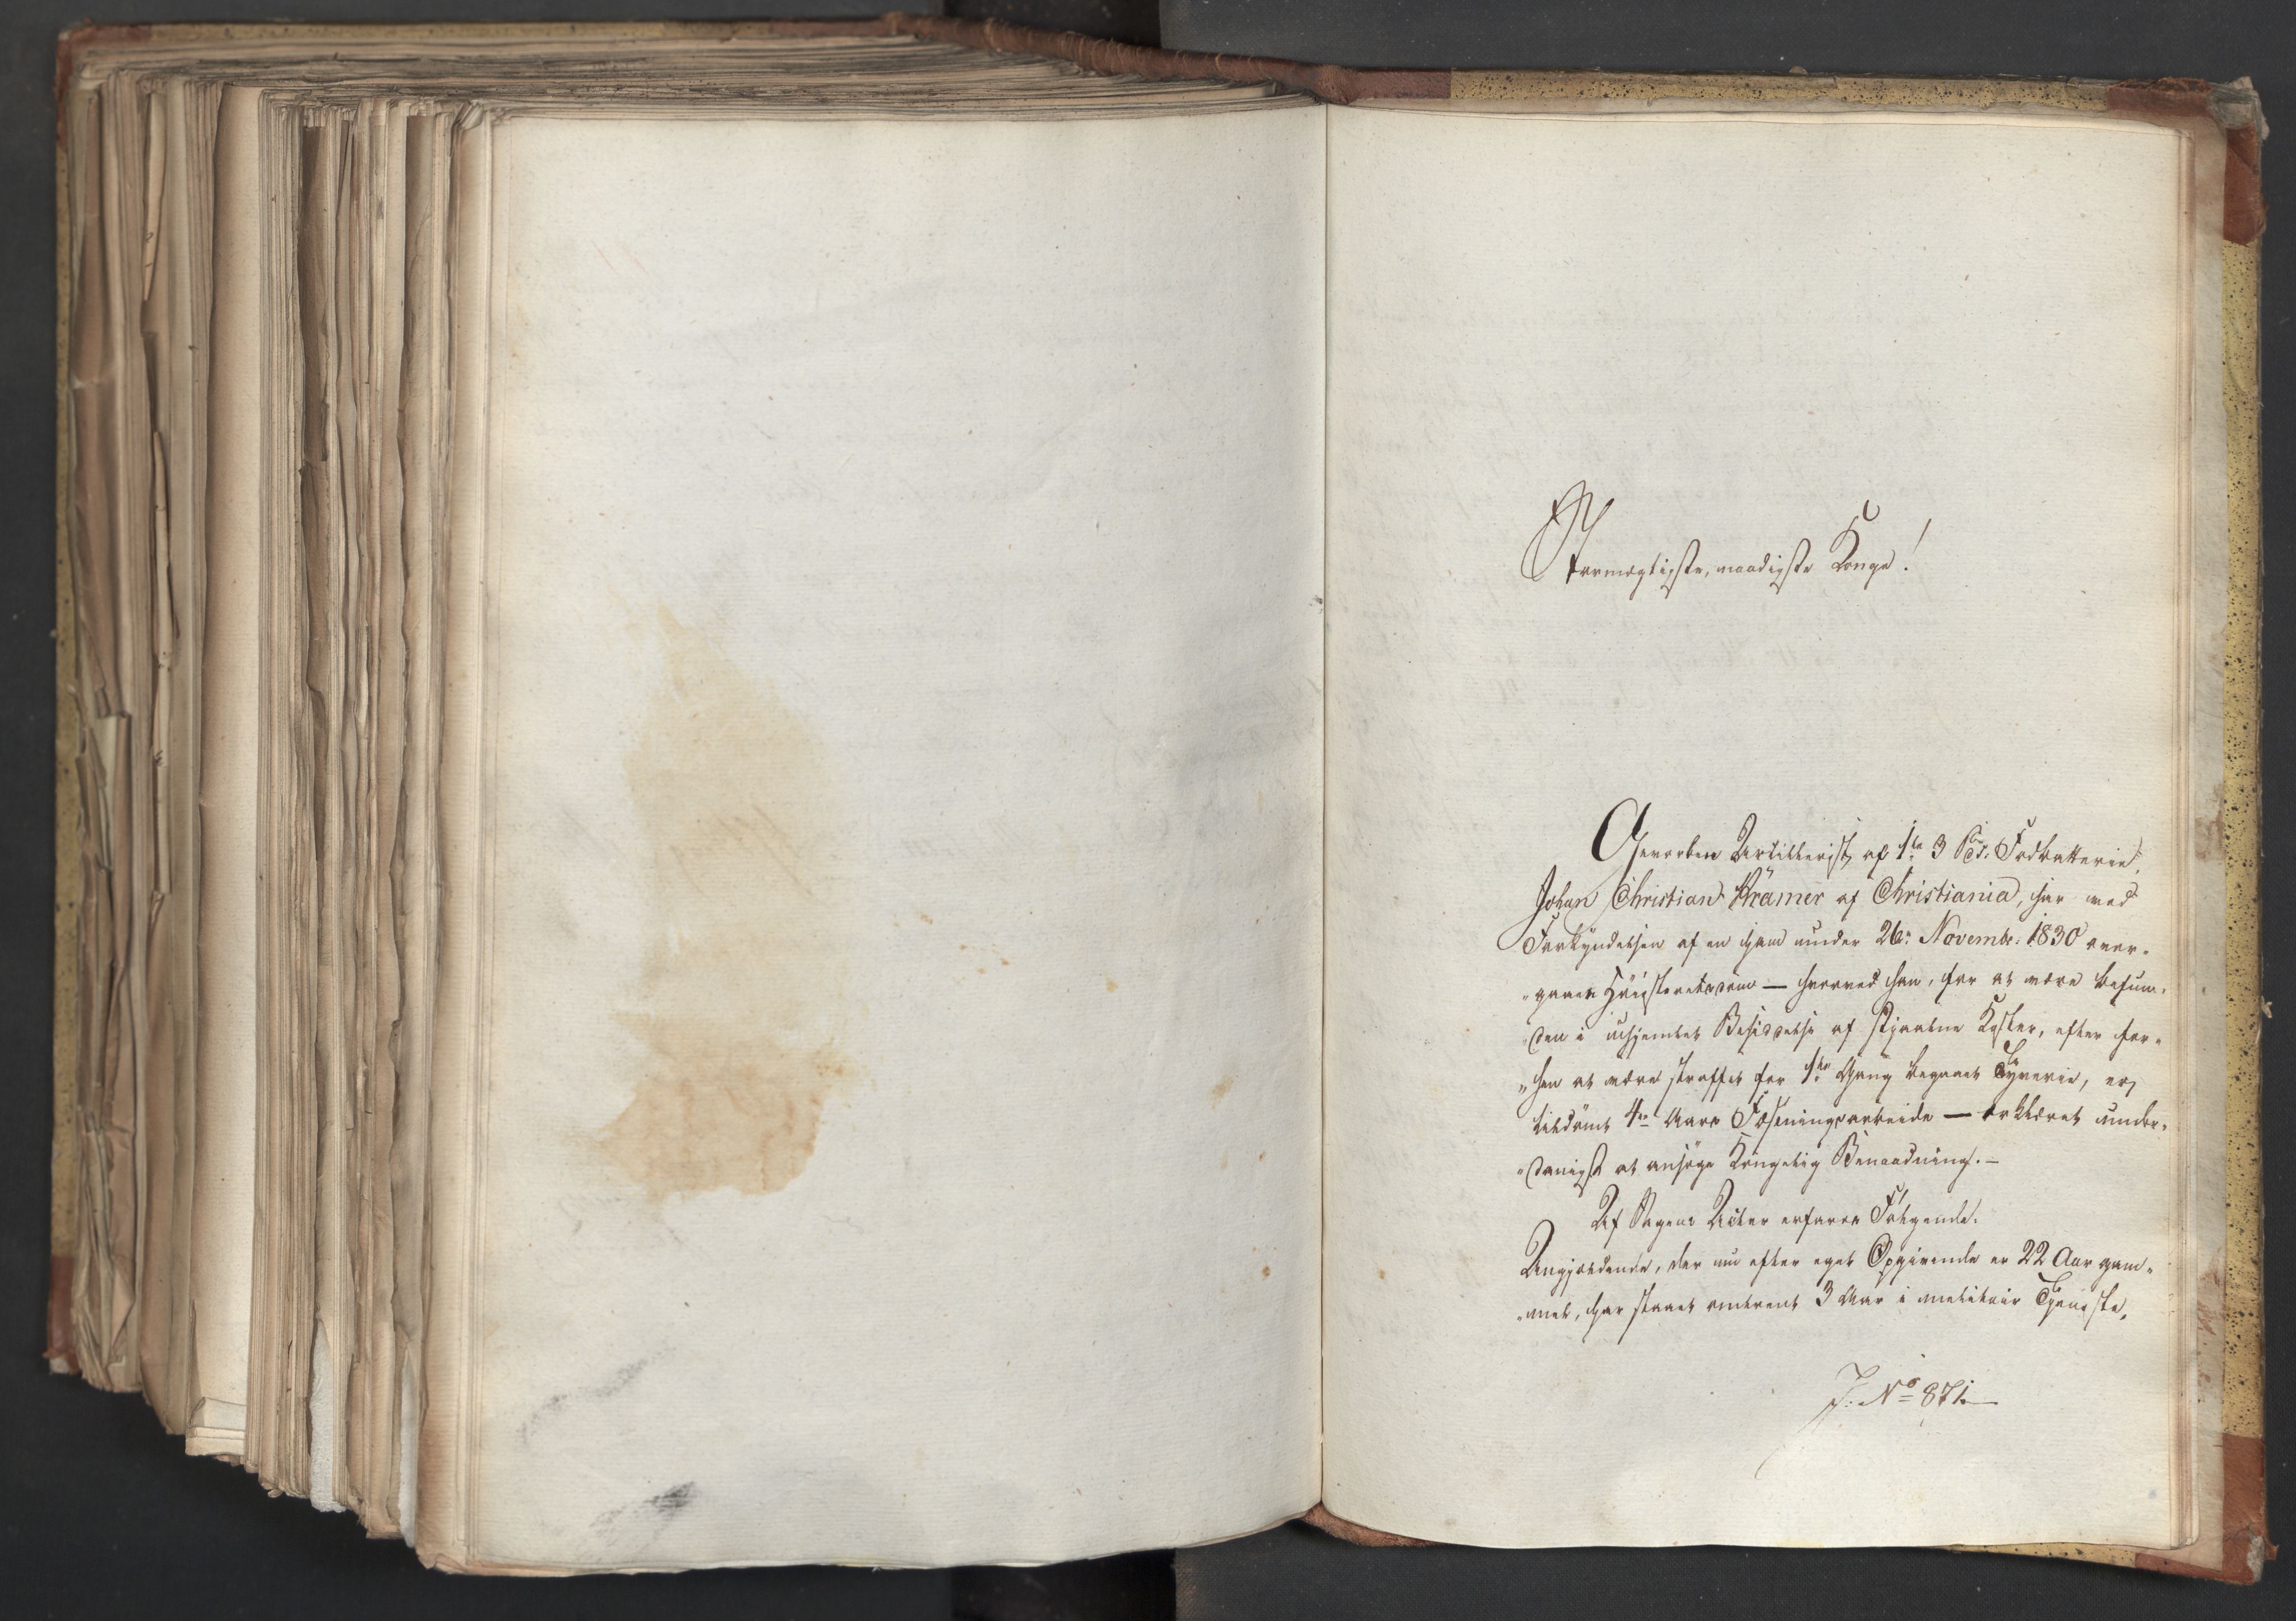 Stormægtigste, naadigste Konge!
Gevorben Artillerist af 1ste 3 Pds: Fodbatterie,
Johan Christian Krämer af Christiania, har ved
Forkyndelsen af en ham under 26de Novembr: 1830 over-
"gaaen Höiesteretsdom — hvorved han, for at være befun-
"den i uhjemlet Besiddelse af stjaalne Koster, efter for-
"hen at være straffet for 1ste Gang begaaet Tyverie, er
tildömt 4re Aars Fæstningsarbeide — erklæret under-
"danigst at ansöge Kongelig Benaadning. —
Af Sagens Acter erfares Fölgende:
Angjældende, der nu efter eget Opgivende er 22 Aar gam-
"mel, har staaet omtrent 3 Aar i militair Tjeneste,
J: No 871.—